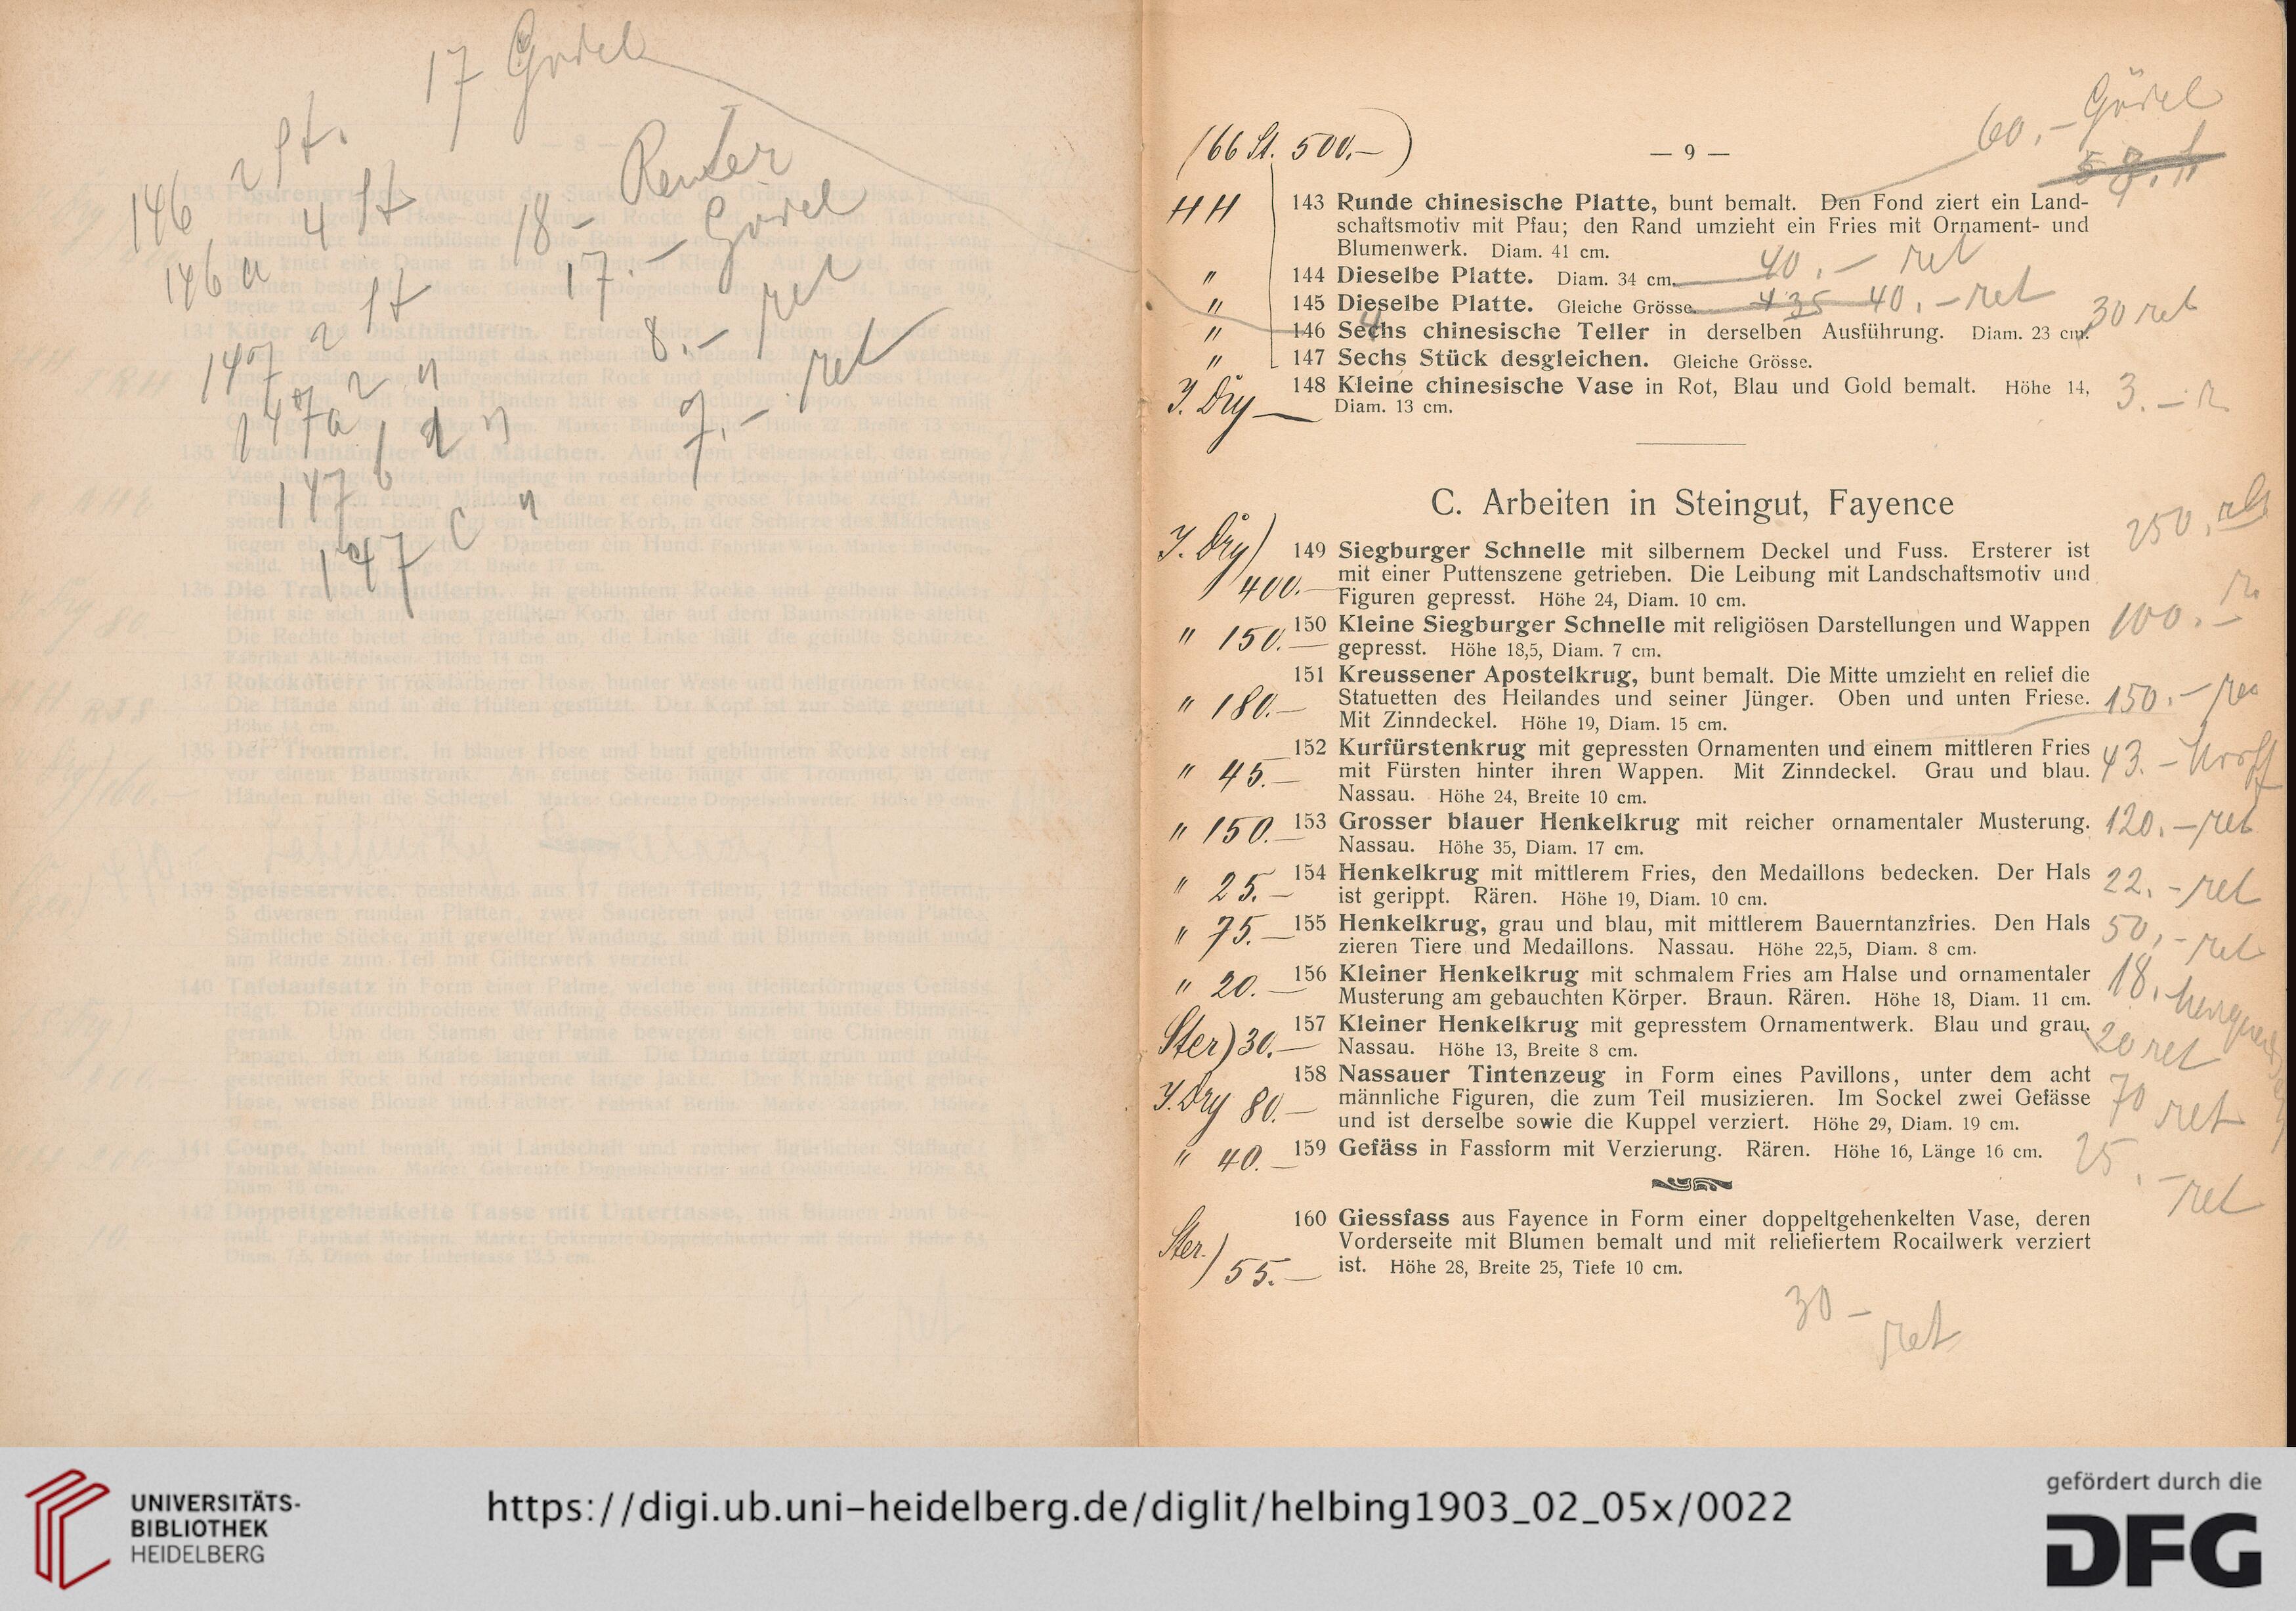 17 Gödel
2 St.
146 4 St 18.- Reuter
146 a 2 St 17.- Gödel
147 2 " 8.- ret
147a 2 " 7.- ret
147 b "
147 c
(66 St. 500.-)
— 9 —
60.- Gödel
HH
143 Runde chinesische Platte, bunt bemalt. Den Fond ziert ein Land-
schaftsmotiv mit Pfau; den Rand umzieht ein Fries mit Ornament- und
Blumenwerk. Diam. 41 cm.
" 144 Dieselbe Platte. Diam. 34 cm. 40.- ret
" 145 Dieselbe Platte. Gleiche Grösse. 435 40.- ret
" 146 Sechs chinesische Teller in derselben Ausführung. Diam. 23 cm. 30 ret
4
" 147 Sechs Stück desgleichen. Gleiche Grösse.
J. Dry 148 Kleine chinesische Vase in Rot, Blau und Gold bemalt. Höhe 14, 3.- r
Diam. 13 cm.
C. Arbeiten in Steingut, Fayence
J. Dry) 149 Siegburger Schnelle mit silbernem Deckel und Fuss. Ersterer ist 250.
400.- mit einer Puttenszene getrieben. Die Leibung mit Landschaftsmotiv und
Figuren gepresst. Höhe 24, Diam. 10 cm.
" 150.- 150 Kleine Siegburger Schnelle mit religiösen Darstellungen und Wappen 100.-
gepresst. Höhe 18,5, Diam. 7 cm.
151 Kreussener Apostelkrug, bunt bemalt. Die Mitte umzieht en relief die
" 180.- Statuetten des Heilandes und seiner Jünger. Oben und unten Friese. 150.- ret
Mit Zinndeckel. Höhe 19, Diam. 15 cm.
152 Kurfürstenkrug mit gepressten Ornamenten und einem mittleren Fries
" 45.- mit Fürsten hinter ihren Wappen. Mit Zinndeckel. Grau und blau. 43.-
Nassau. Höhe 24, Breite 10 cm.
" 150.- 153 Grosser blauer Henkelkrug mit reicher ornamentaler Musterung. 120.- ret
Nassau. Höhe 35, Diam. 17 cm.
" 25.- 154 Henkelkrug mit mittlerem Fries, den Medaillons bedecken. Der Hals 22.- ret
ist gerippt. Rären. Höhe 19, Diam. 10 cm.
" 75.- 155 Henkelkrug, grau und blau, mit mittlerem Bauerntanzfries. Den Hals 50.- ret
zieren Tiere und Medaillons. Nassau. Höhe 22,5, Diam. 8 cm.
" 20.- 156 Kleiner Henkelkrug mit schmalem Fries am Halse und ornamentaler 18.
Musterung am gebauchten Körper. Braun. Rären. Höhe 18, Diam. 11 cm.
Ster) 30.- 157 Kleiner Henkelkrug mit gepresstem Ornamentwerk. Blau und grau. 20 ret
Nassau. Höhe 13, Breite 8 cm.
J. Dry 80.- 158 Nassauer Tintenzeug in Form eines Pavillons, unter dem acht 70 ret
männliche Figuren, die zum Teil musizieren. Im Sockel zwei Gefässe
und ist derselbe sowie die Kuppel verziert. Höhe 29, Diam. 19 cm.
" 40.- 159 Gefäss in Fassform mit Verzierung. Rären. Höhe 16, Länge 16 cm. 25.- ret
160 Giessfass aus Fayence in Form einer doppeltgehenkelten Vase, deren
Ster.) Vorderseite mit Blumen bemalt und mit reliefiertem Rocailwerk verziert
55.- ist. Höhe 28, Breite 25, Tiefe 10 cm.
30 - ret
UNIVERSITÄTS-
BIBLIOTHEK
HEIDELBERG
https://digi.ub.uni-heidelberg.de/diglit/helbing1903_02_05x/0022
gefördert durch die
DFG